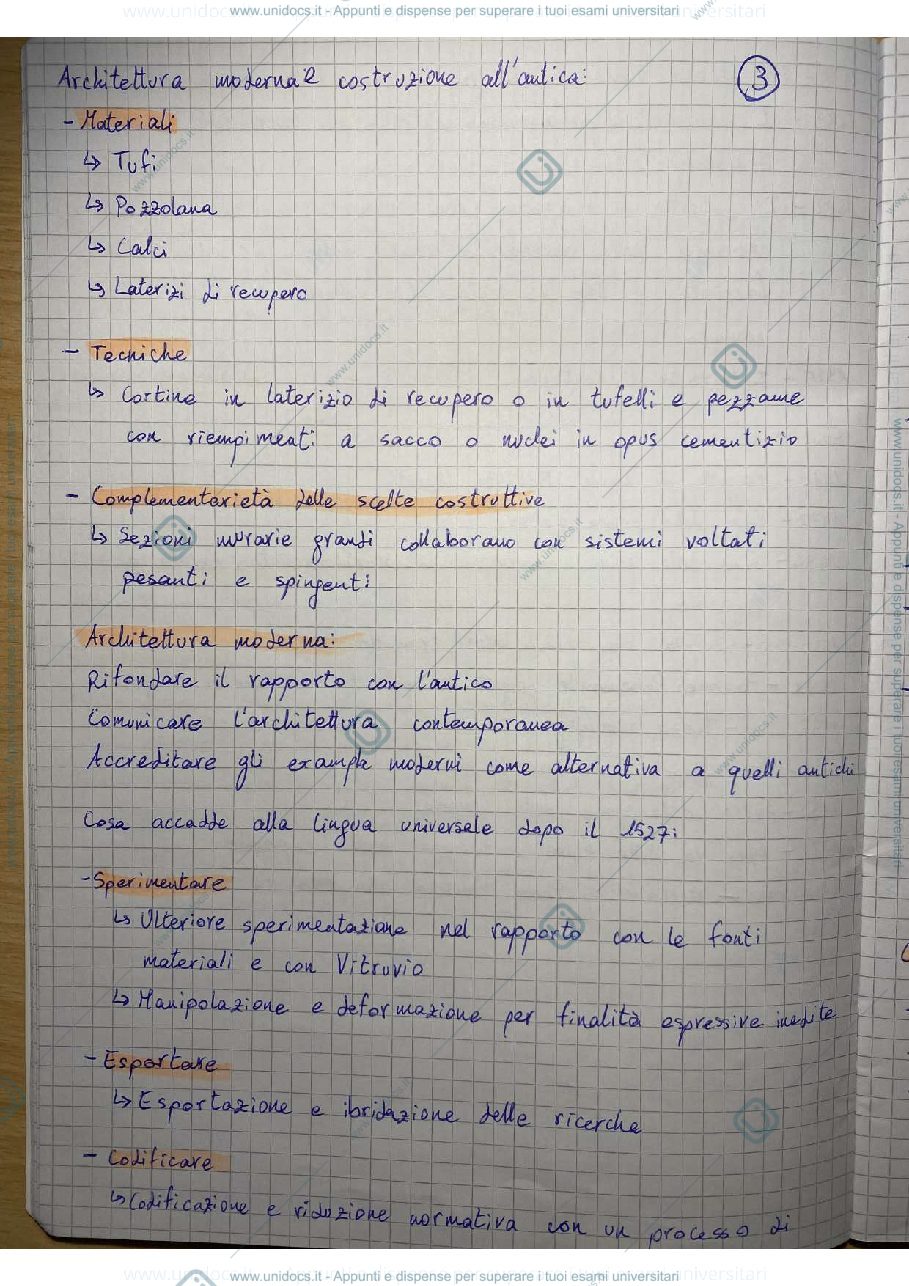 www.unidocs.it - Appunti e dispense per superare i tuoi esami universitari
Architettura moderna e costruzione all'antica:
3
- Materiali
↳ Tufi
↳ Pozzolana
↳ Calci
↳ Laterizi di recupero
- Tecniche
↳ Cortine in laterizio di recupero o in tufelli e pezzame
con riempimenti a sacco o nuclei in opus cementizio
- Complementarietà delle scelte costruttive
↳ Sezioni murarie grandi collaborano con sistemi voltati
pesanti e spingenti
Architettura moderna:
Rifondare il rapporto con l'antico
Comunicare l'architettura contemporanea
Accreditare gli exampla moderni come alternativa a quelli antichi
Cosa accadde alla lingua universale dopo il 1527:
- Sperimentare
↳ Ulteriore sperimentazione nel rapporto con le fonti
materiali e con Vitruvio
↳ Manipolazione e deformazione per finalità espressive inedite
- Esportare
↳ Esportazione e ibridazione delle ricerche
- Codificare
↳ Codificazione e riduzione normativa con un processo di
www.unidocs.it - Appunti e dispense per superare i tuoi esami universitari